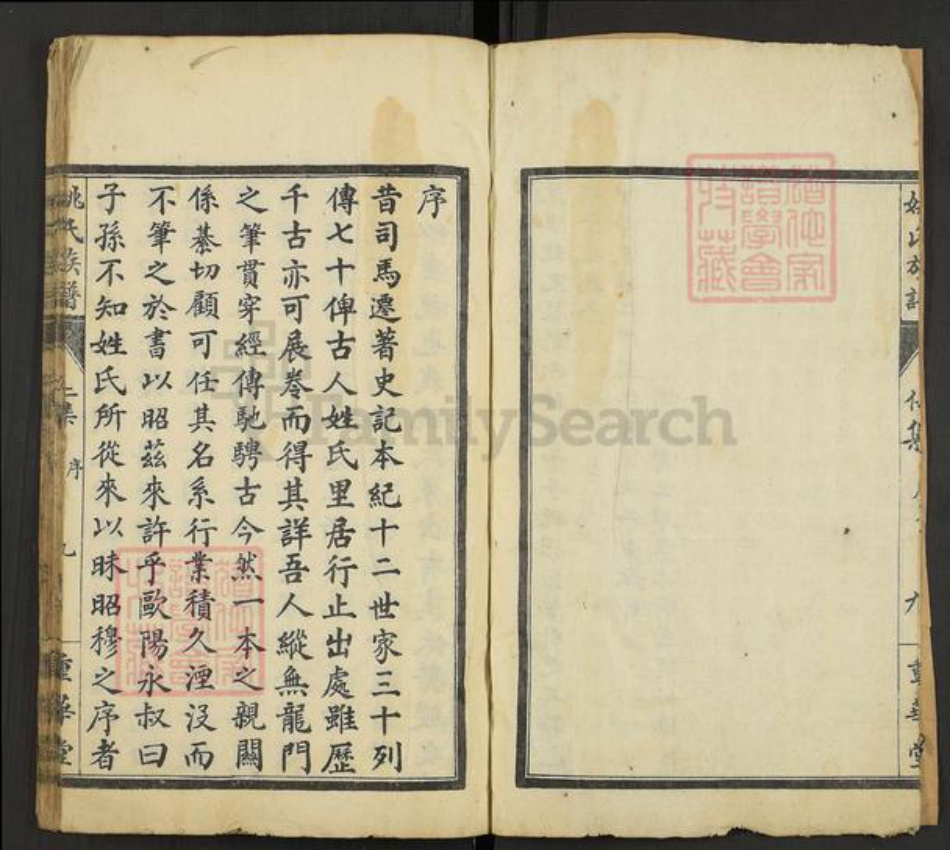 姚氏族譜
集
九
重華堂
序
昔司馬遷著史記本紀十二世家三十列
傳七十俾古人姓氏里居行止出處雖歷
千古亦可展卷而得其詳吾人縱無龍門
之筆貫穿經傳馳騁古今然一本之親關
係綦切顧可任其名系行業積久湮没而
不筆之於書以昭茲來許乎歐陽永叔曰
子孫不知姓氏所從來以昧昭穆之序者
姚氏族譜
集
序
九
重華堂
FamilySearch